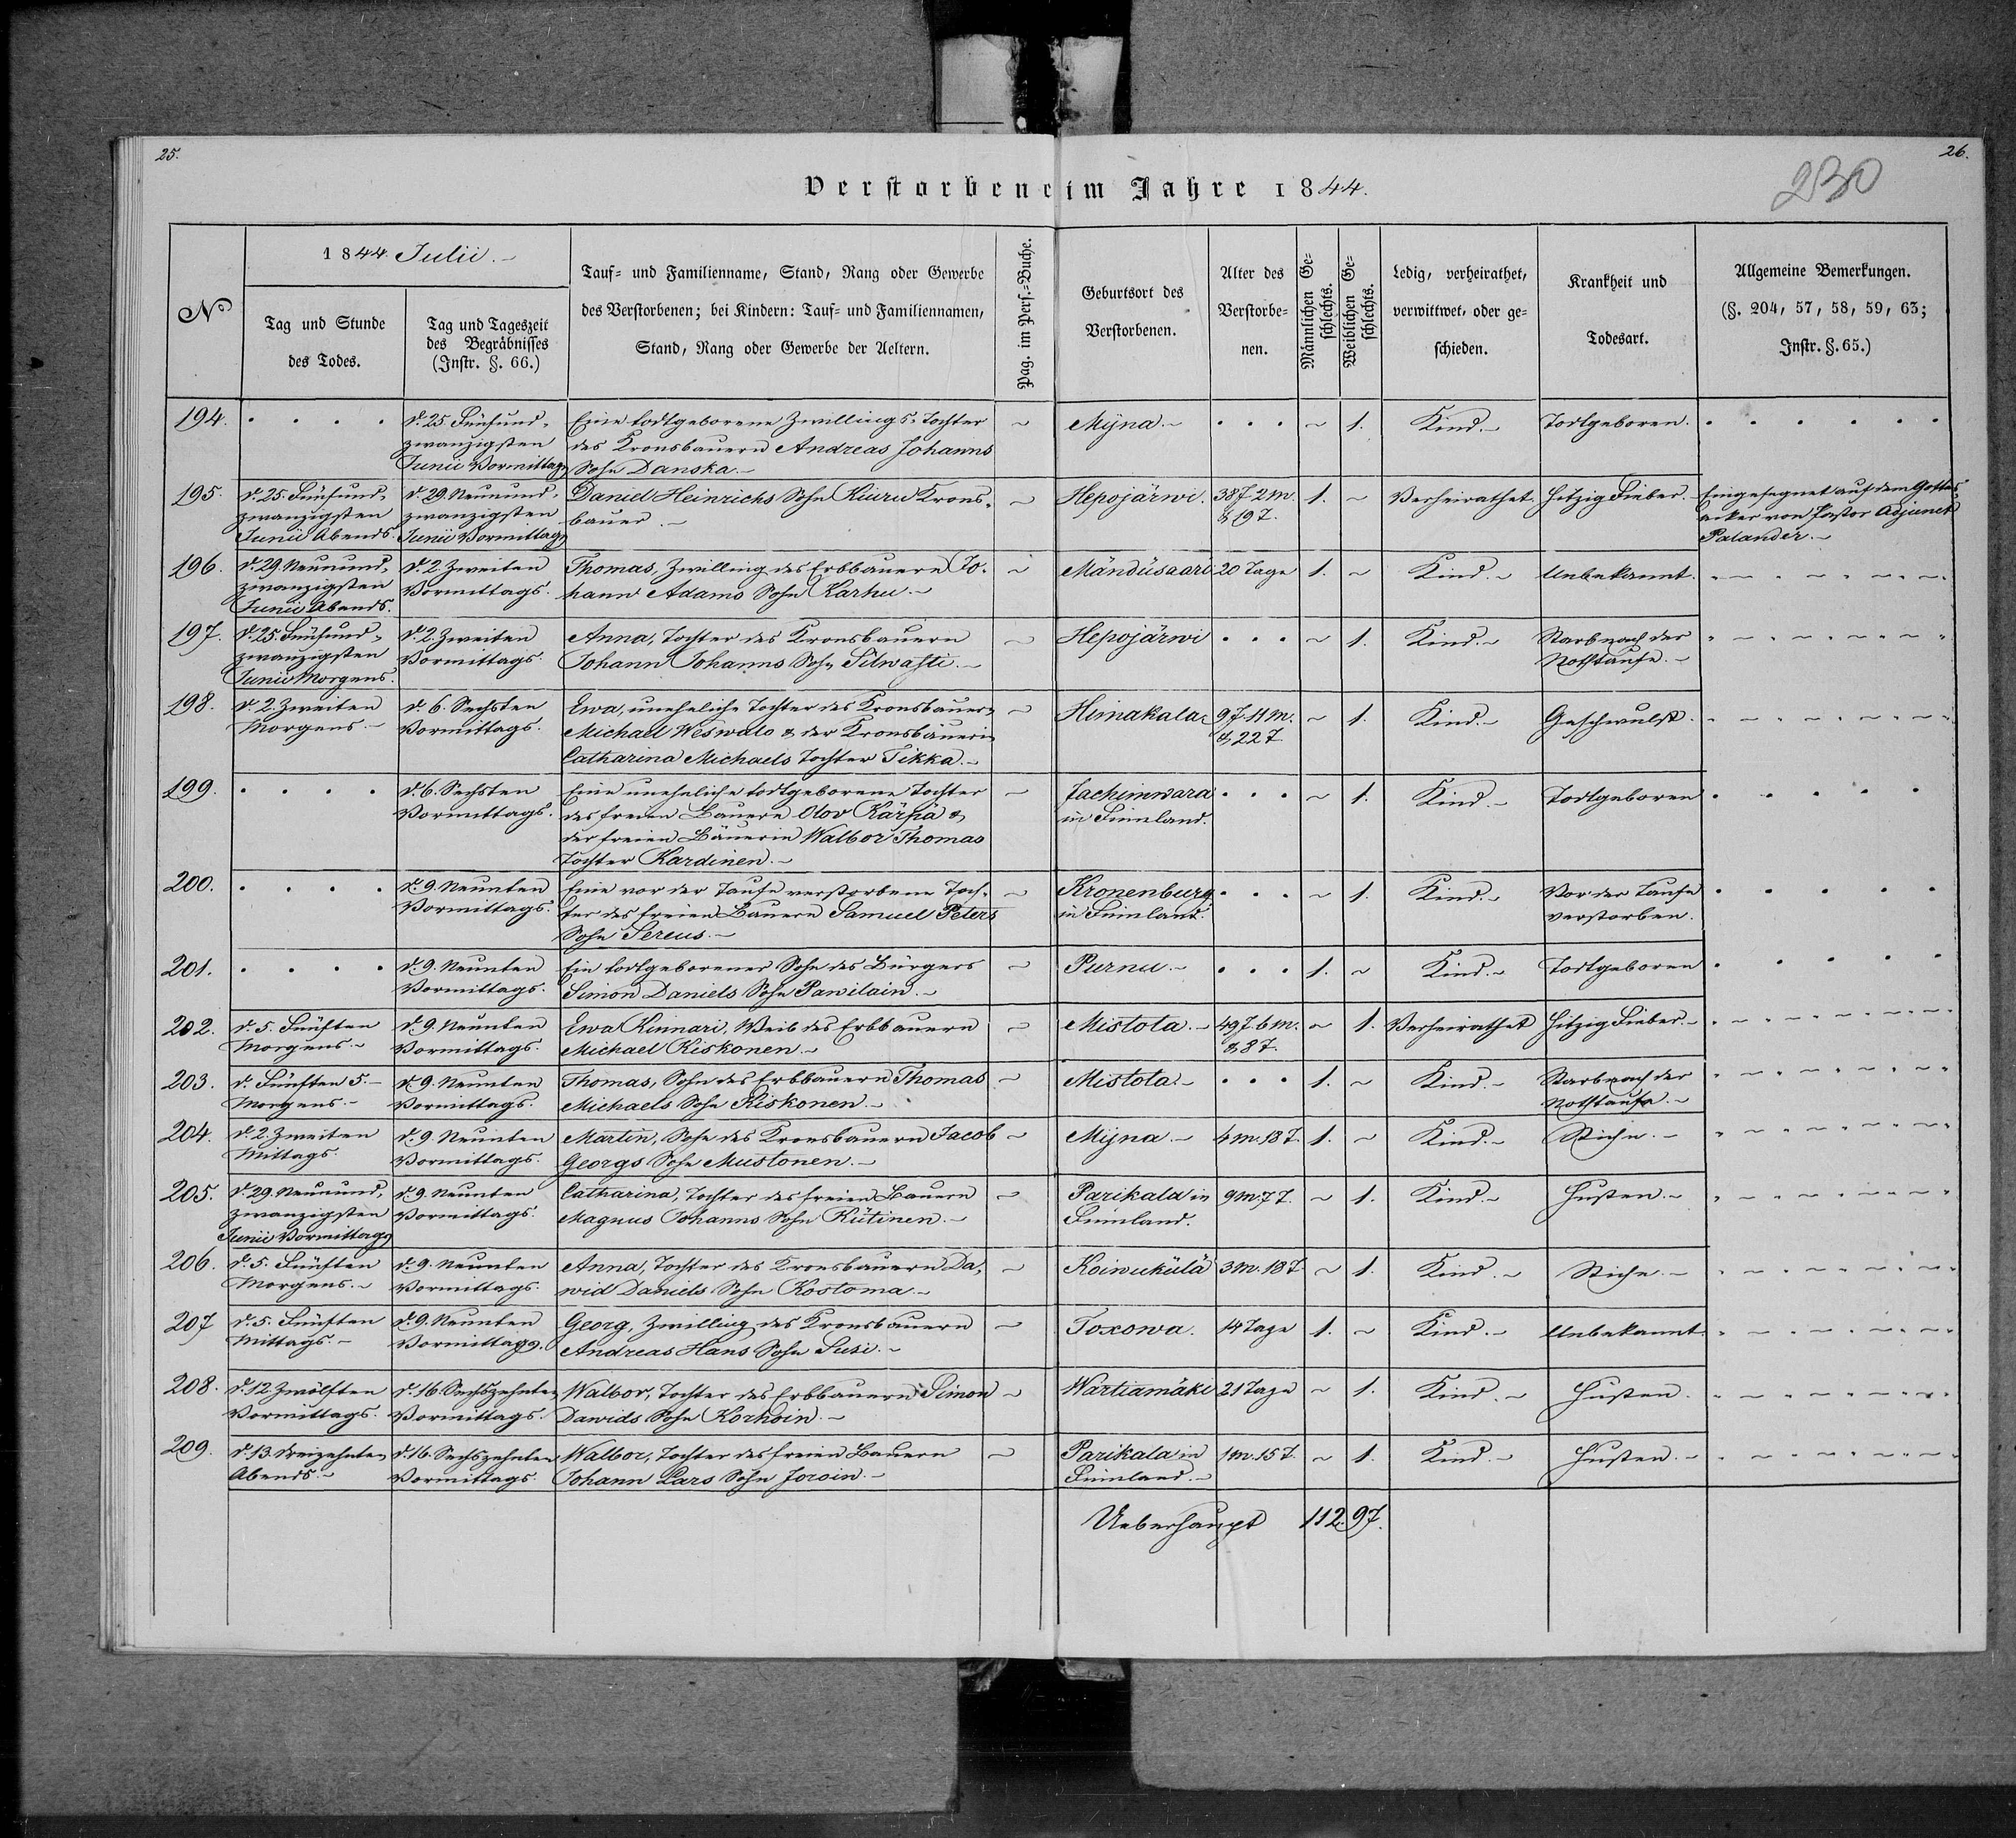 25.
26.
230
Verstorbene im Jahre 1844.
No
1844. Julii.
Tag und Stunde
des Todes.
Tag und Tageszeit
des Begräbnisses
(Instr. §. 66.)
Tauf- und Familienname, Stand, Rang oder Gewerbe
des Verstorbenen; bei Kindern: Tauf- und Familiennamen,
Stand, Rang oder Gewerbe der Aeltern.
Pag. im Pers.-Buche.
Geburtsort des
Verstorbenen.
Alter des
Verstorbe-
nen.
Männlichen Ge-
schlechts.
Weiblichen Ge-
schlechts.
Ledig, verheirathet,
verwittwet, oder ge-
schieden.
Krankheit und
Todesart.
Allgemeine Bemerkungen.
(§. 204, 57, 58, 59, 63;
Instr. §. 65.)
194.
d. 25. Fünfund-
zwanzigsten
Junii Vormittags
Eine todtgeborene Zwillings-Tochter
des Kronsbauern Andreas Johanns
Sohn Danska.
Mÿna.
1.
Kind.
Todtgeboren.
195.
d. 25. Fünfund-
zwanzigsten
Junii Abends.
d. 29. Neunund-
zwanzigsten
Junii Vormittags
Daniel Heinrichs Sohn Kiuru Krons-
bauer.
Hepojärwi.
38 J. 2 M.
& 19 T.
1.
Verheirathet.
Hitzig Fieber.
Eingesegnet auf dem Gottes-
acker von Pastor Adjunct
Palander.
196.
d. 29. Neunund-
zwanzigsten
Junii Abends.
d. 2. Zweiten
Vormittags.
Thomas, Zwilling des Erbbauern Jo-
hann Adams Sohn Karhu.
Mändüsaari
20 Tage
1.
Kind.
Unbekannt.
197.
d. 25. Fünfund-
zwanzigsten
Junii Morgens.
d. 2. Zweiten
Vormittags.
Anna, Tochter des Kronsbauern
Johann Johanns Sohn Silwasti.
Hepojärwi
1.
Kind.
Starb nach der
Nothtaufe.
198.
d. 2. Zweiten
Morgens
d. 6. Sechsten
Vormittags.
Ewa, uneheliche Tochter des Kronsbauern
Michael Weswalo & der Kronsbäuerin
Catharina Michaels Tochter Tikka.
Himakala
9 J. 11 M.
& 22 T.
1.
Kind.
Geschwulst.
199.
d. 6. Sechsten
Vormittags.
Eine uneheliche todtgeborene Tochter
des freien Bauern Olov Kärpä &
der freien Bäuerin Walbor Thomas
Tochter Kardinen.
Jachimwara
in Finnland.
1.
Kind.
Todtgeboren
200.
d. 9. Neunten
Vormittags.
Eine vor der Taufe verstorbene Toch-
ter des freien Bauern Samuel Peters
Sohn Sereus.
Kronenburg
in Finnland.
1.
Kind.
Vor der Taufe
verstorben.
201.
d. 9. Neunten
Vormittags.
Ein todtgeborener Sohn des Bürgers
Simon Daniels Sohn Pawilain.
Purnu.
1.
Kind.
Todtgeboren
202.
d. 5. Fünften
Morgens.
d. 9. Neunten
Vormittags.
Ewa Kinnari, Weib des Erbbauern
Michael Kiskonen.
Mistola.
49 J. 6 M.
& 8 T.
1.
Verheirathet
Hitzig Fieber.
203.
d. Fünften 5.
Morgens.
d. 9. Neunten
Vormittags.
Thomas, Sohn des Erbbauern Thomas
Michaels Sohn Kiskonen.
Mistola.
1.
Kind.
Starb nach der
Nothtaufe.
204.
d. 2. Zweiten
Mittags.
d. 9. Neunten
Vormittags.
Martin, Sohn des Kronsbauern Jacob
Georgs Sohn Mustonen.
Mÿna.
4 M. 18 T.
1.
Kind.
Stiche.
205.
d. 29. Neunund-
zwanzigsten
Junii Vormittags
d. 9. Neunten
Vormittags.
Catharina, Tochter des freien Bauern
Magnus Johanns Sohn Rütinen.
Parikala in
Finnland.
9 M. 7 T.
1.
Kind.
Husten.
206.
d. 5. Fünften
Morgens.
d. 9. Neunten
Vormittags.
Anna, Tochter des Kronsbauern Da-
wid Daniels Sohn Kostoma.
Koiwukülä
3 M. 18 T.
1.
Kind.
Stiche.
207
d. 5. Fünften
Mittags.
d. 9. Neunten
Vormittags.
Georg, Zwilling des Kronsbauern
Andreas Hans Sohn Susi.
Toxowa.
14 Tage
1.
Kind.
Unbekannt.
208.
d. 12. Zwölften
Vormittags.
d. 16. Sechszehnten
Vormittags.
Walbor, Tochter des Erbbauern Simon
Dawids Sohn Korhoin.
Wartiamäki
21 Tage
1.
Kind.
Husten.
209.
d. 13. Dreizehnten
Abends.
d. 16. Sechszehnten
Vormittags.
Walbor, Tochter des freien Bauern
Johann Lars Sohn Joroin.
Parikala in
Finnland.
1 M. 15 T.
1.
Kind.
Husten.
Ueberhaupt 112. 97.